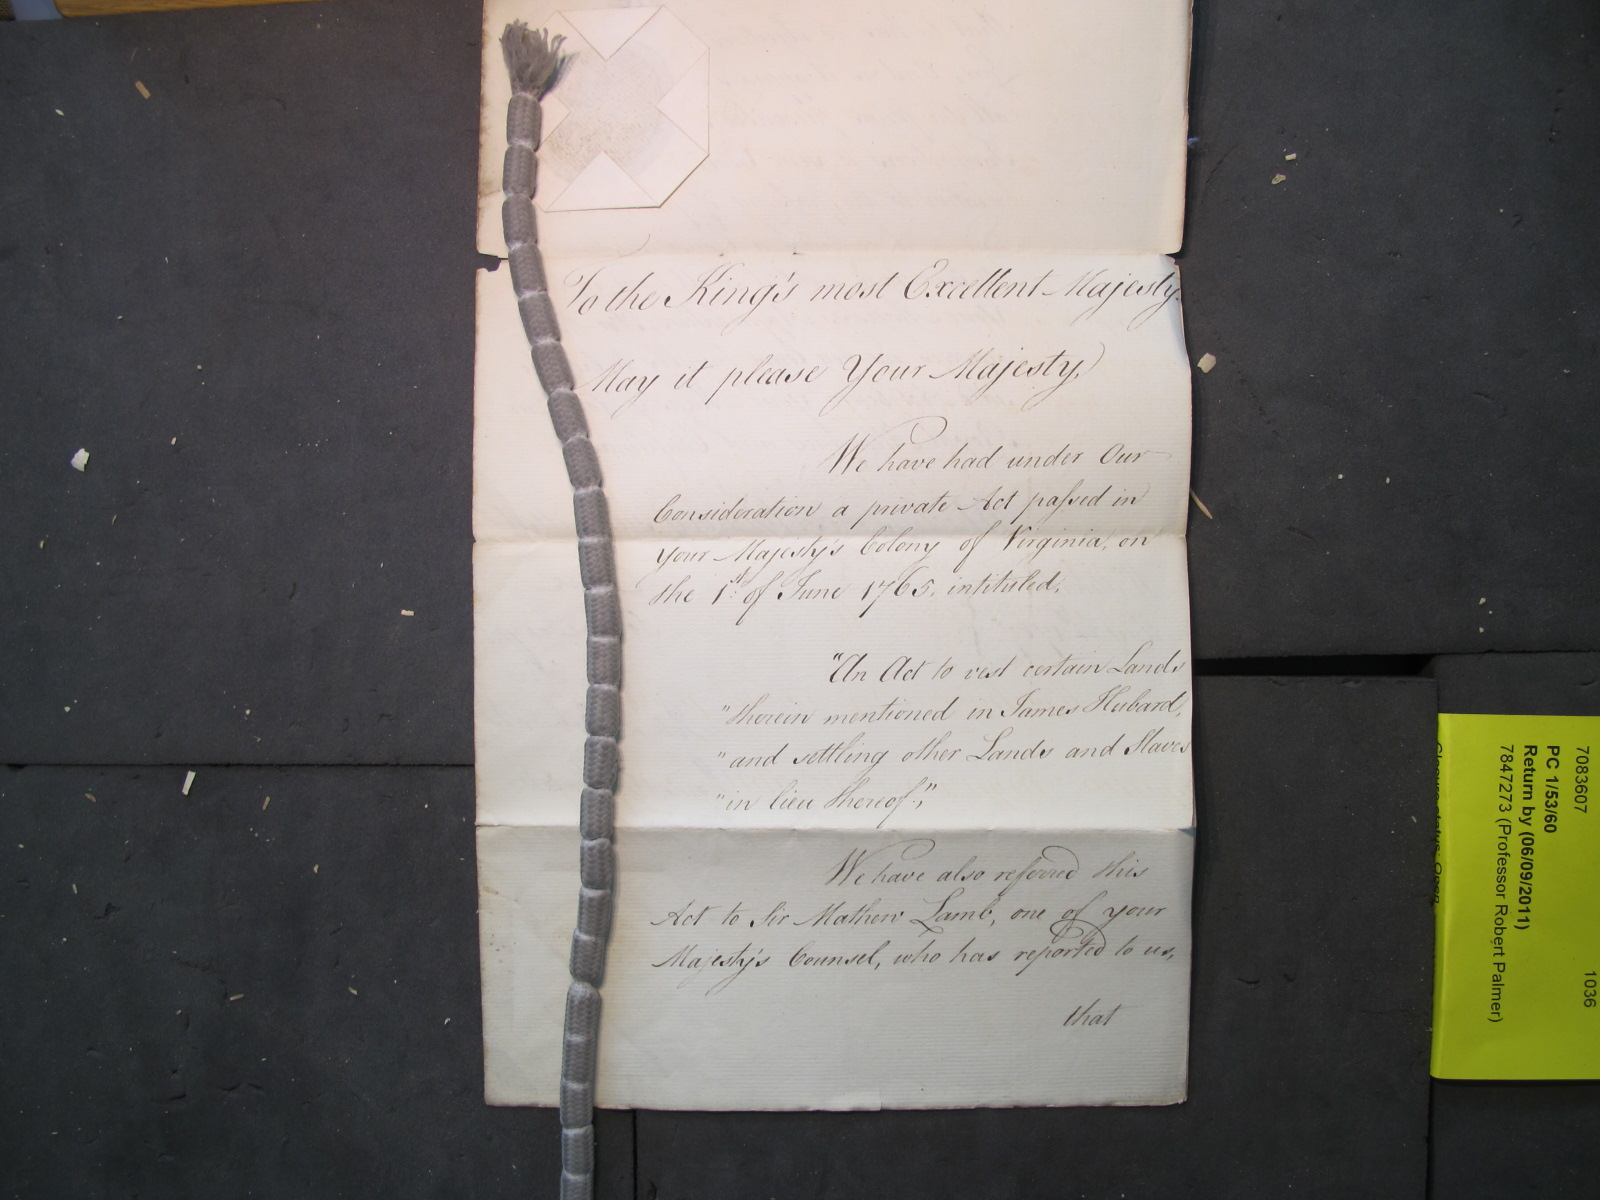 To the King's most Excellent Majesty.
May it please Your Majesty,
We have had under Our
Consideration a private Act paſsed in
Your Majesty's Colony of Virginia, on
the 1st. of June 1765. intituled,
"An Act to vest certain Lands
"therein mentioned in James Hubard,
"and settling other Lands and Slaves
"in lieu thereof;"
We have also referred this
Act to Sir Mathew Lamb, one of your
Majesty's Counsel, who has reported to us,
that
7083607 1036
PC 1/53/60
Return by (06/09/2011)
7847273 (Professor Robert Palmer)
Closure status: Open